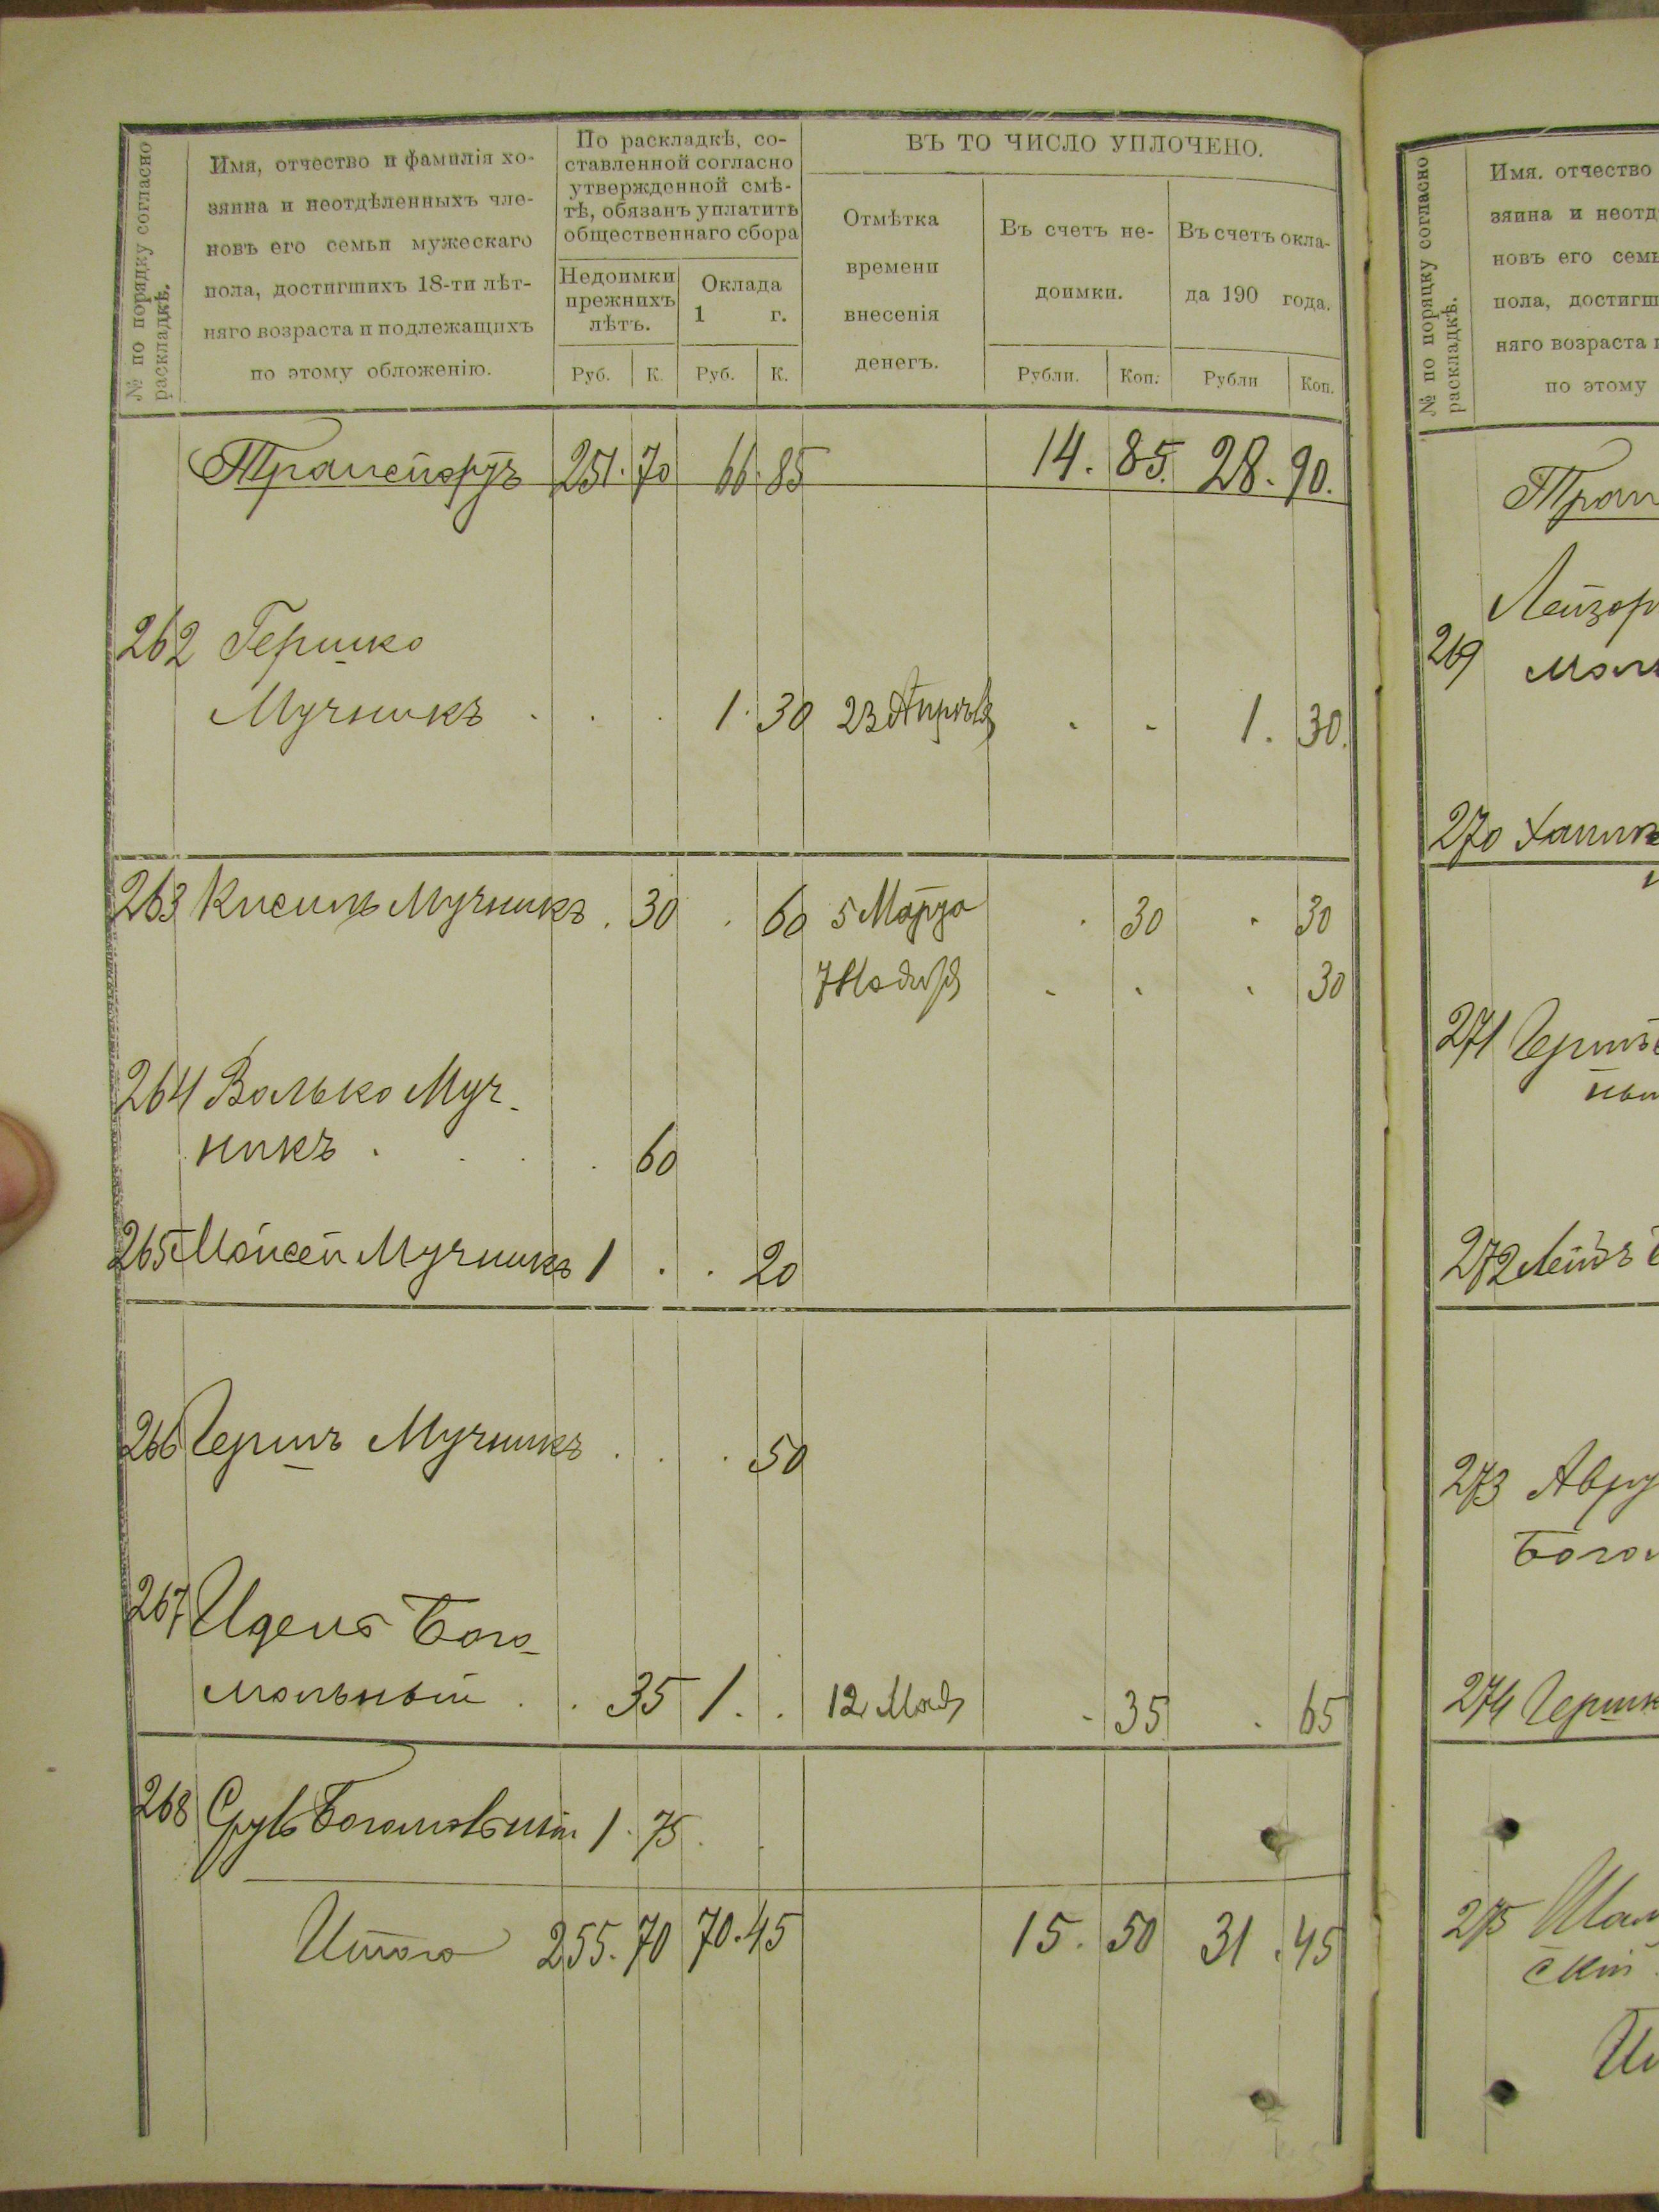 № по порядку согласно
раскладкѣ.
Имя, отчество и фамилія хо-
зяина и неотдѣленныхъ чле-
новъ его семьи мужескаго
пола, достигшихъ 18-ти лѣт-
няго возраста и подлежащихъ
по этому обложенію.
По раскладкѣ, со-
ставленной согласно
утвержденной смѣ-
тѣ, обязанъ уплатить
общественнаго сбора
Недоимки
прежнихъ
лѣтъ.
Оклада
1 г.
Руб. К. Руб. К.
ВЪ ТО ЧИСЛО УПЛОЧЕНО.
Отмѣтка
времени
внесенія
денегъ.
Въ счетъ не-
доимки.
Въ счетъ окла-
да 190 года.
Рубли. Коп. Рубли Коп.
Транспортъ 251. 70 66. 85 14. 85. 28. 90.
262 Гершко
Мучникъ . . . 1. 30 23 Апрѣля . - 1. 30.
263 Кисиль Мучникъ . 30 . 60 5 Марта . 30 . 30
7 . . . 30
264 Волько Муч-
никъ . . . . 60
265 Мойсей Мучникъ 1 . . 20
266 Гершъ Мучникъ . . . 50
267 Идель Бого-
мольный . . 35 1. . 12 . 35 . 65
268 Сруль Богомольный 1. 75. .
Итого 255. 70 70. 45 15. 50 31. 45
№ по порядку согласно
раскладкѣ.
Имя. отчество
зяина и неотд
новъ его семь
пола, достигш
няго возраста
по этому
Тран
Лейзор
269
270
271 Герш
272
273 Авру
Бого
274 Гершк
275
скій